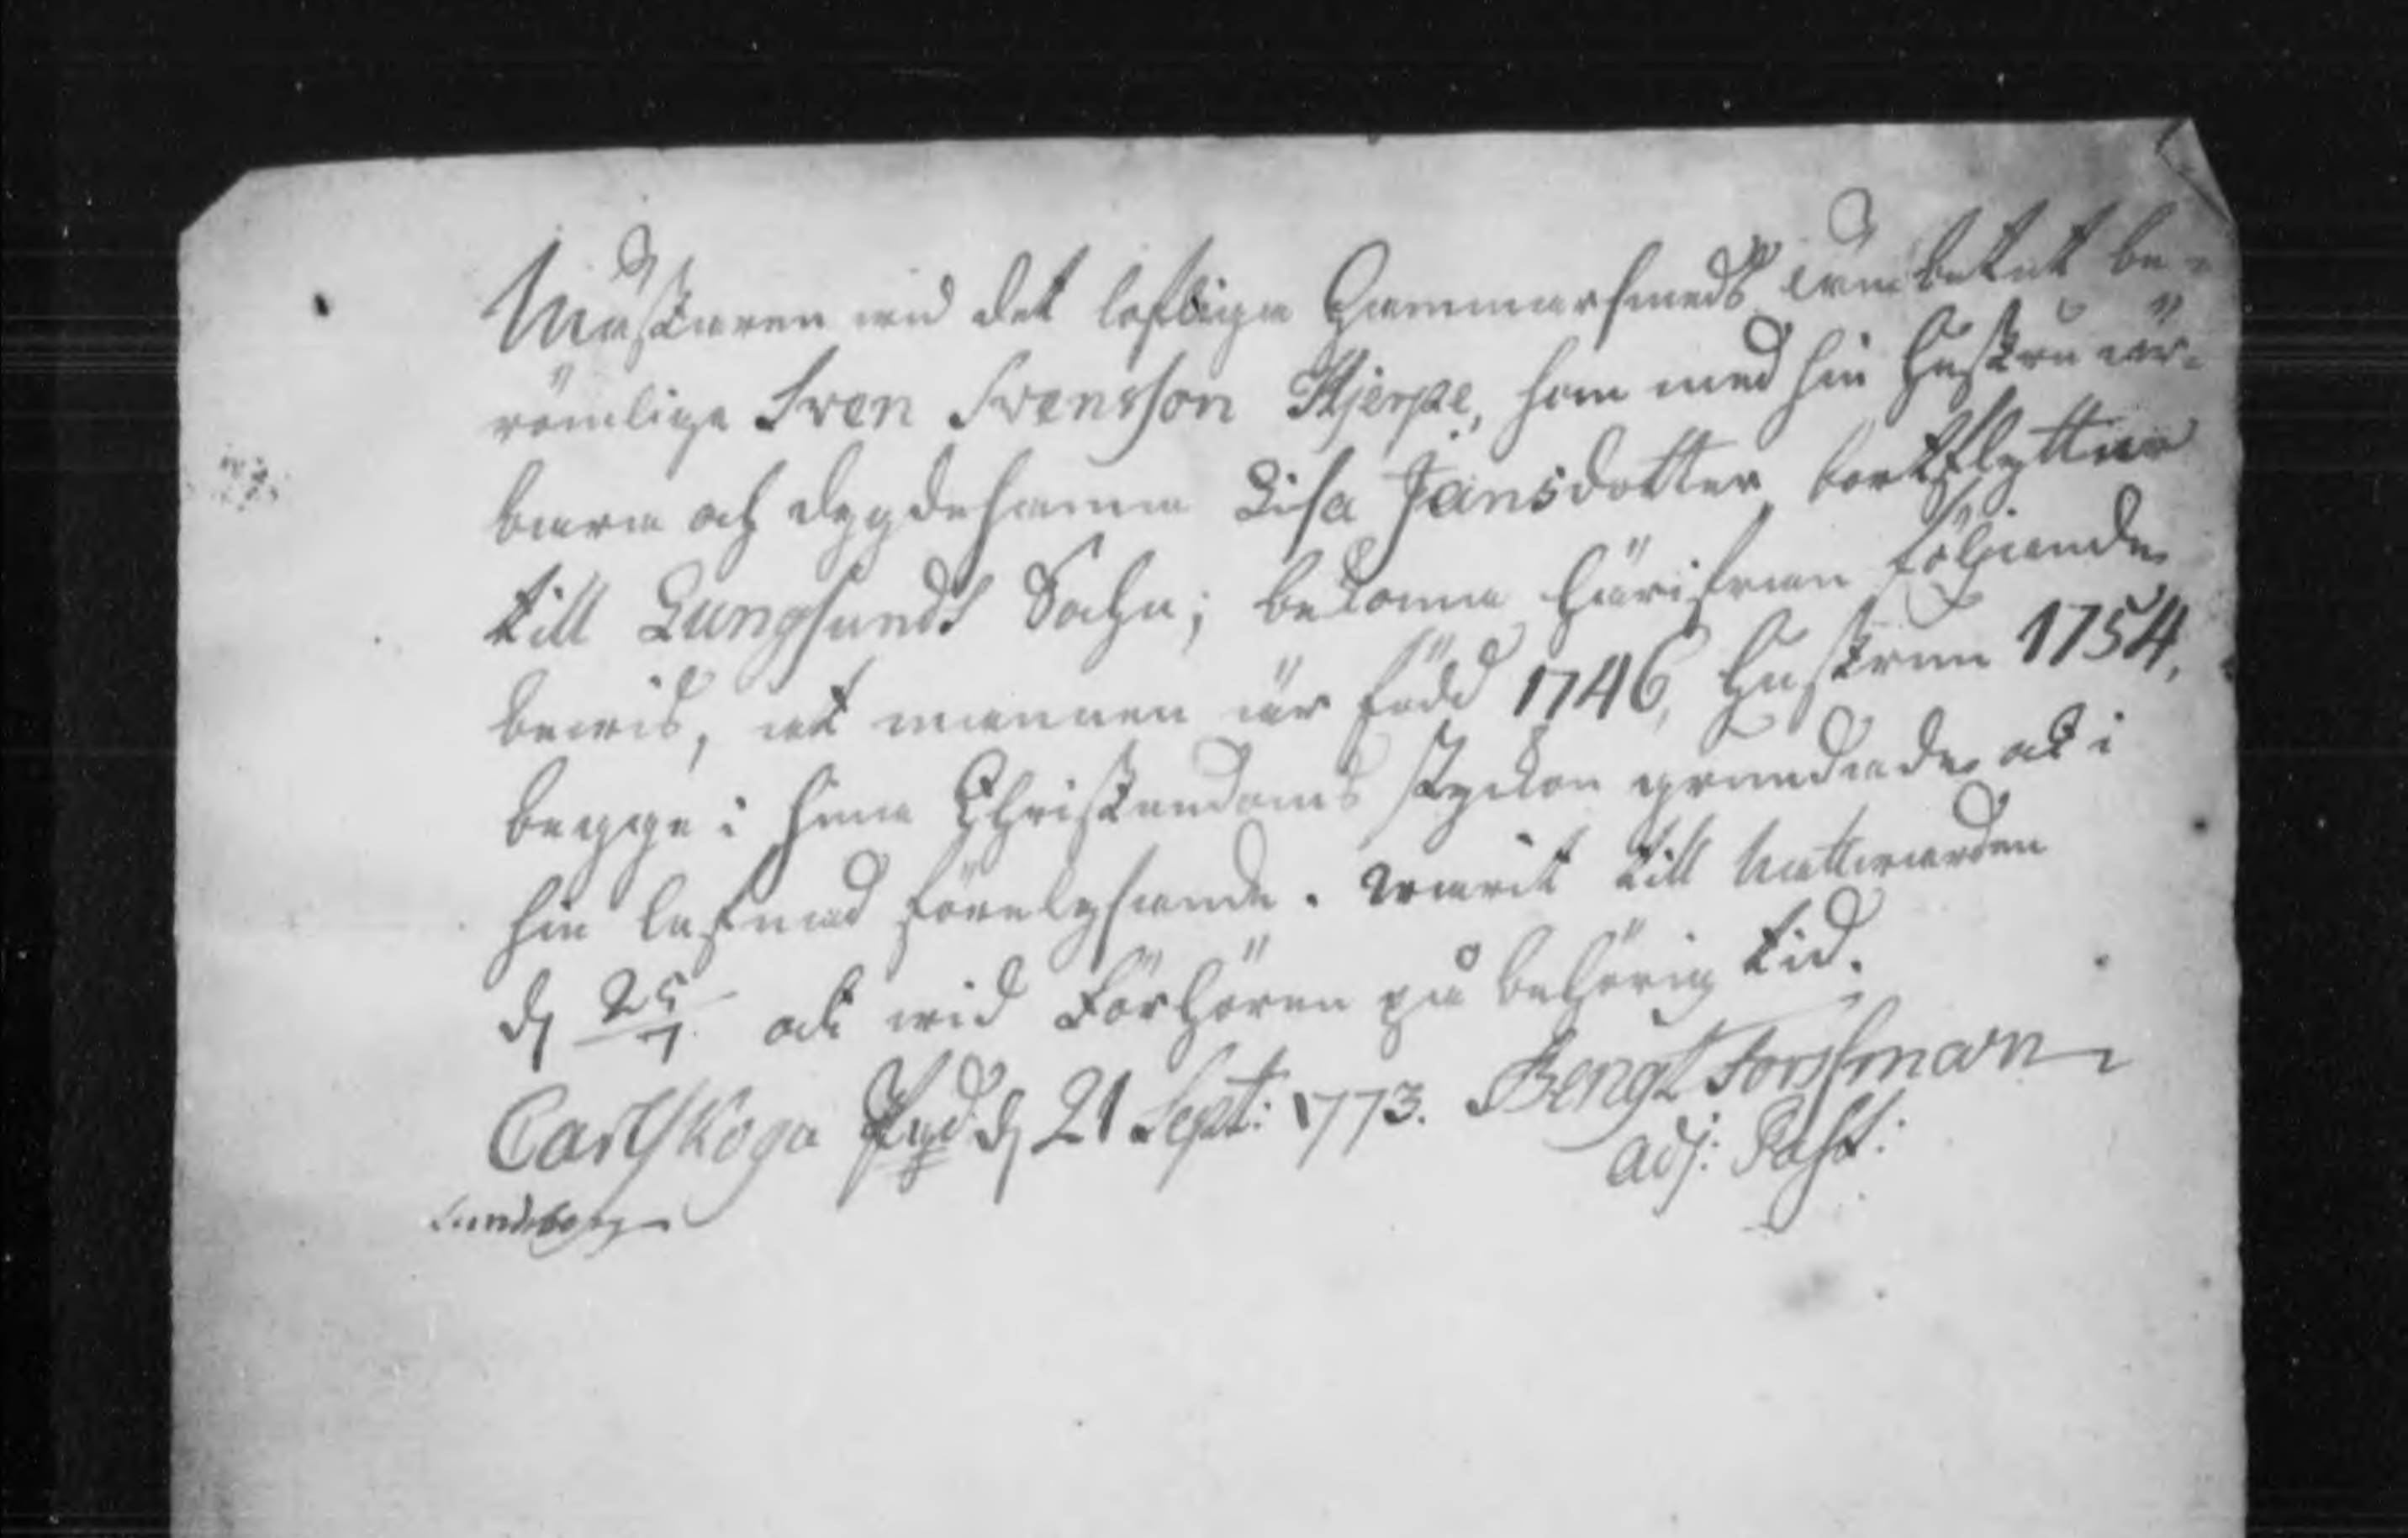 Mästaren wid det loflige Hammarsmeds ämbetet be-
römlige Sven Svensson Kjerpe, som med sin hustru ähr-
bara och dygdesamma Lisa Jansdotter bortflyttar
till Lungsunds Sokn; bekomma härifrån följande
bewis, at mannen är född 1746, hustrun 1754,
begge i sina Christendoms stycken grundade ock i
sin lefnad förelysande. Warit till Nattwarden
d 25/7 ock wid Förhören på behörig tid.
Carlskoga Pgd d 21 Sept: 1773. Bengt Forssman
adj: Past: